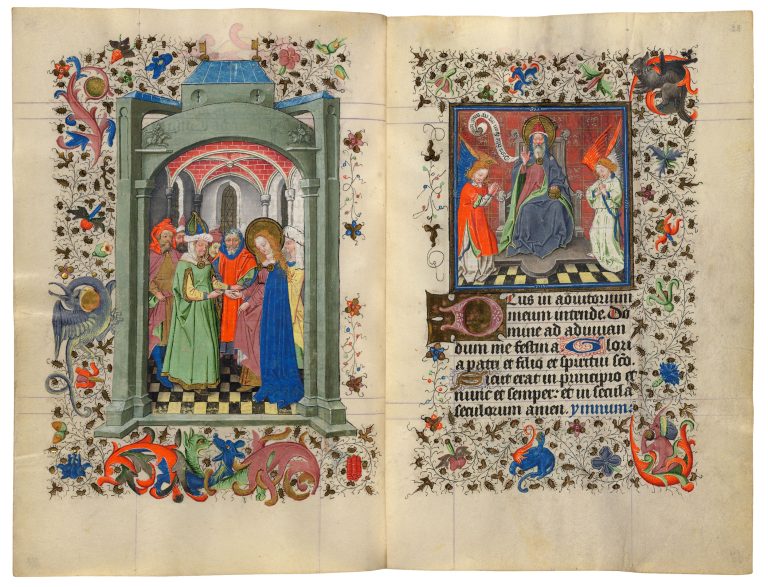 Deus in adiutorium
meum intende. Do
mine ad adiuuan
dum me festina Glori
a patri et filio et spiritui sco
Sicut erat in principio et
nunc et semper: et in secula
seculorum amen. ymnum.